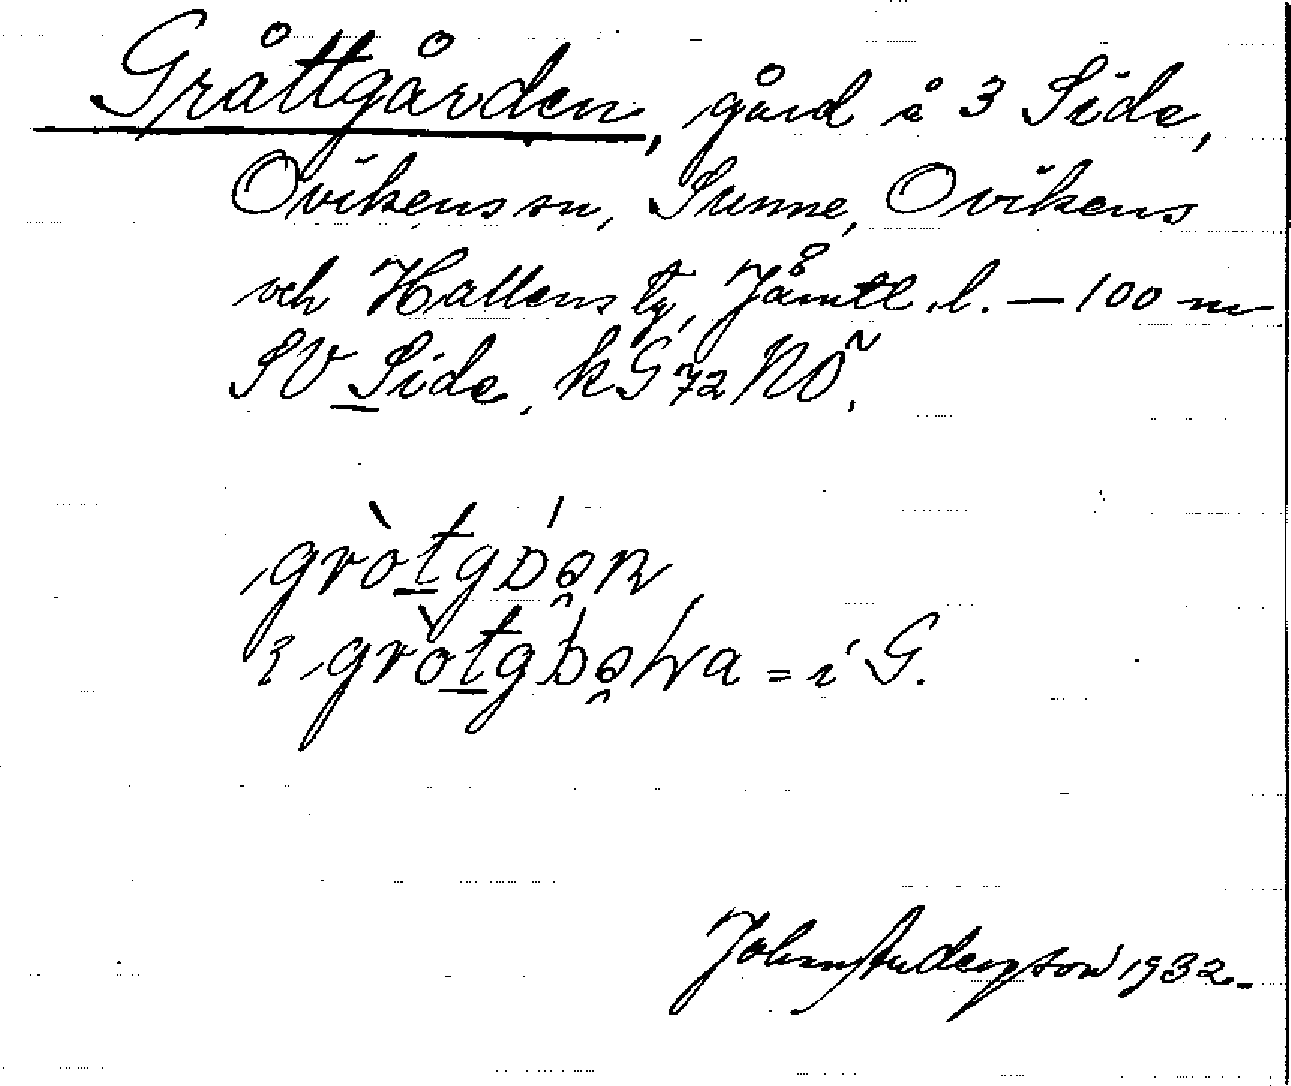 Gråttgården, gård å 3 Side,
Ovikens sn, Sunne, Ovikens
och Hallens tg, Jämtl. l. — 100 m
SV Side, kG 72 NÖ.
gròtgɒ́ən
i gròtgɒ́əɴa = i G.
John Anderson 1932.